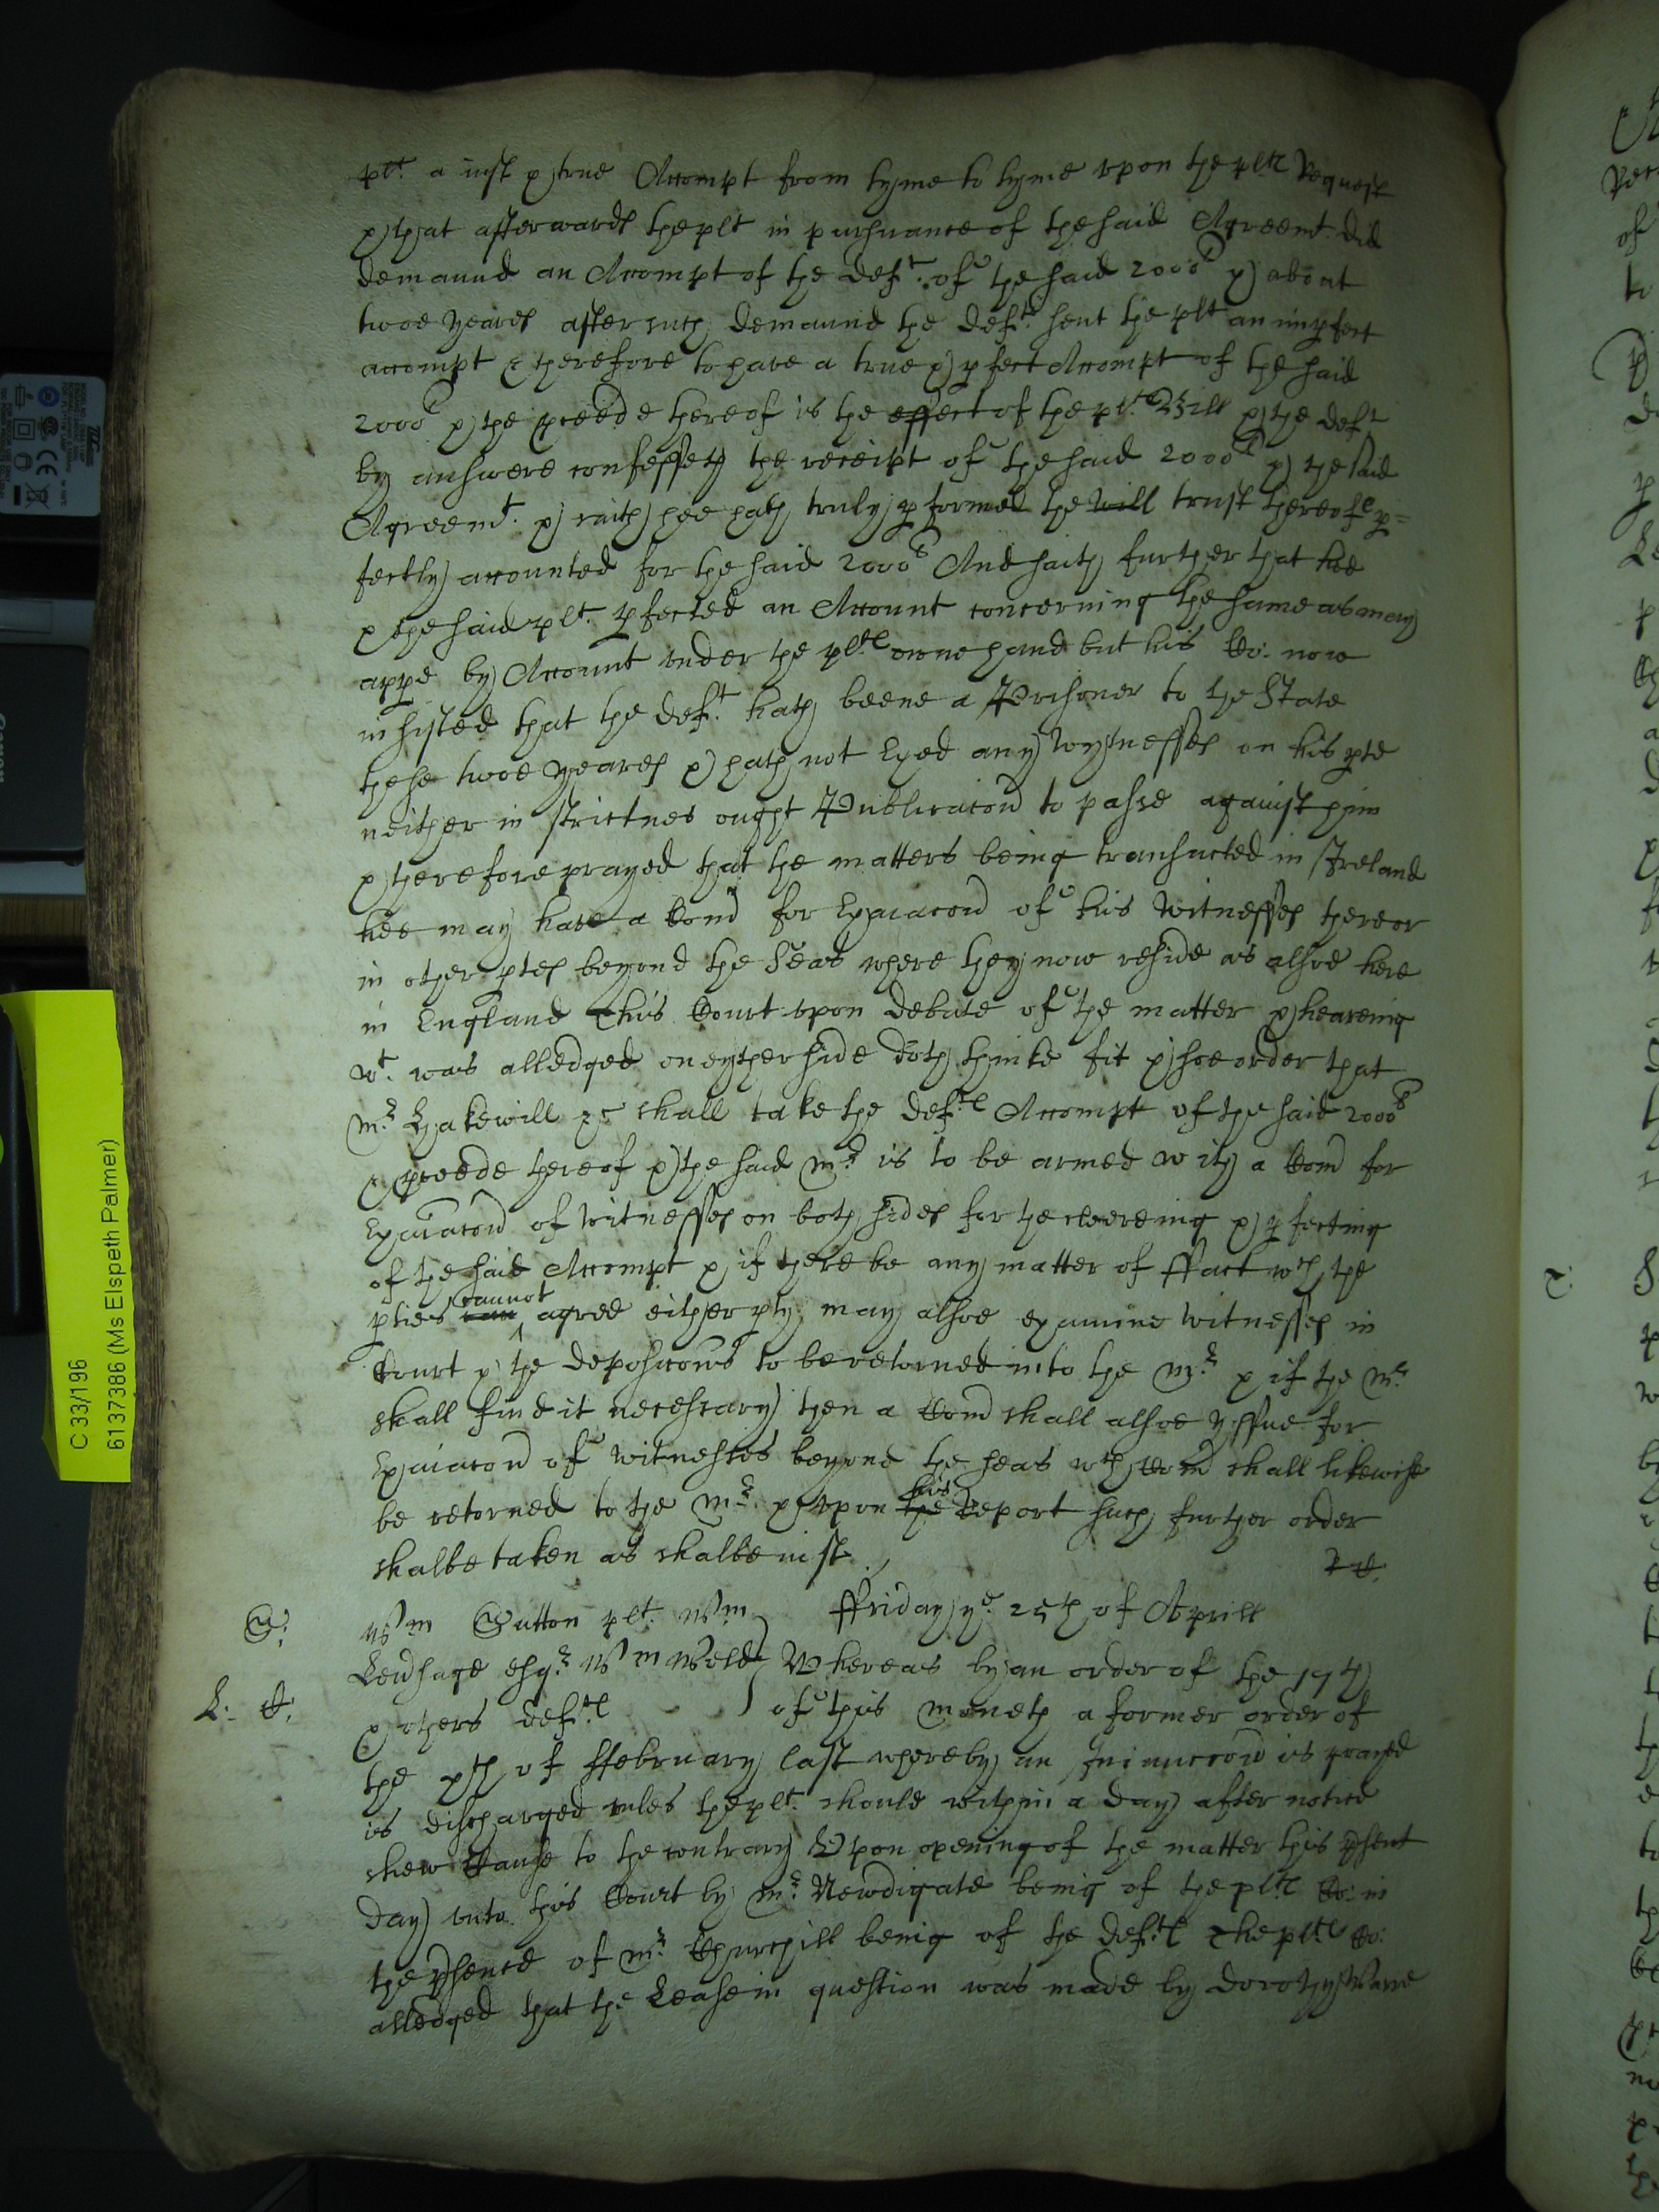 plt. a iust & true Accompt from tyme to tyme vpon the plts Request
& that afterwards the plt in pursuance of the said Agreemt. did
demaund an Accompt of the Deft. of the said 2000l & about
twoe yeares after such demaund the Deft. sent the plt an imperfect
accompt & therefore to have a true & perfect Accompt of the said
2000l & the proceede thereof is the effect of the plts Bill & the deft
by answere confesseth the receipt of the said 2000l & the said
Agreemt. & saith hee hath truly performed the will trust thereof & per=
fectly accounted for the said 2000l And saith further that hee
& the said plt. perfected an Account concerning the same as may
appe by Account under the plts owne hand but his Co: now
insisted that the deft. hath beene a Prisoner to the State
these twoe yeares & hath not Exed any Wytnesses on his pte
neither in strictnes ought Publicacon to passe against him
& therefore prayed that the matters being transacted in Ireland
hee may have a Comn for Exaiacon of his Witnesses there or
in other ptes beyond the Seas where they now reside as alsoe here
in England This Court vpon debate of the matter & heareing
wt. was alledged on eyther side doth thinke fit & soe order that
Mr. Hakewill &c shall take the defts Accompt of the said 2000l
& proceede thereof & the said Mr. is to be armed with a Comn for
Exaiacon of Witnesses on both sides for the cleereing & perfecting
of the said Accompt & if there be any matter of ffact wch the
cannot
pties can agree either pty may alsoe examine Witnesses in
Court & the deposicons to be retorned into the Mr. & if the Mr.
shall find it necessary then a Comn shall alsoe yssue for
Exaiacon of witnesses beyond the seas wch Comn shall likewise
his
be retorned to the Mr. & vpon the Report such further order
shalbe taken as shalbe iust.
S: Wm Sutton plt. Wm ffriday ye. 25th of Aprill
esqr. Wm Weld Whereas by an order of the 19th
L: C. & others defts of this moneth a former order of
the xth of ffebruary last whereby an Iniunccon is prayed
is discharged vnles the plt. should within a day after notice
shew Cause to the contrary Vpon opening of the matter this psent
day vnto this Court by Mr. Newdigate being of the plts Co: in
the psence of Mr. Churchill being of the Defts The plts Co:
alledged that the Lease in question was made by Dorothy
C 33/196
6137386 (Ms Elspeth Palmer)